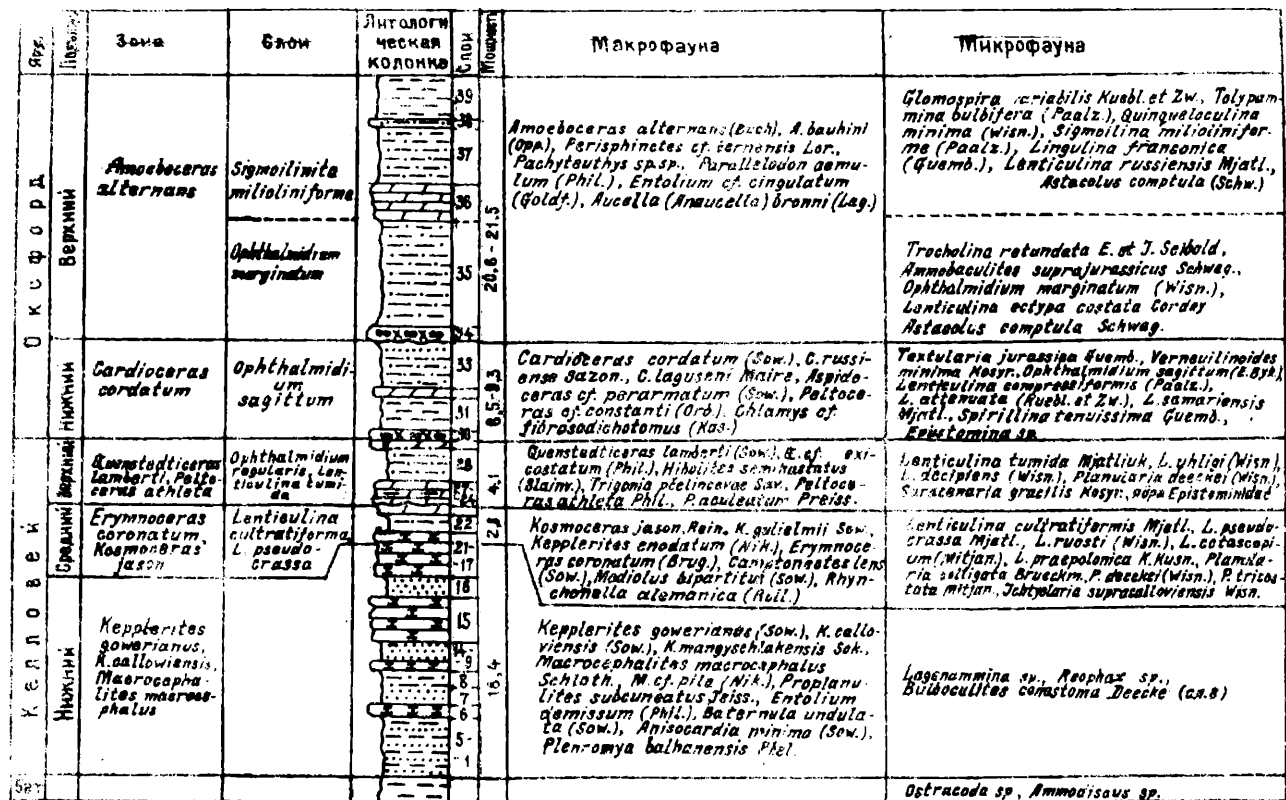 Зона
Слои
Литологи
ческая
колонка
Слои
Мощность
Макрофауна
Микрофауна
Оксфорд
Верхний
Amoeboceras
alternans
Sigmoilinita
milioliniforme
Ophthalmidium
marginatum
39
38
37
36
35
34
20,6-21,5
Amoeboceras alternans (Buch), A. bauhini
(Opp.), Perisphinctes cf. Lor.,
Pachyteuthys sp.sp., Parallelodon aemu-
lum (Phil.), Entolium cf. cingulatum
(Goldf.), Aucella (Anaucella) bronni (Lag.)
Glomospira variabilis Kuebl. et Zw., Tolypam-
mina bulbifera (Paalz.), Quinqueloculina
minima (Wisn.), Sigmoilina miliolinifor-
me (Paalz.), Lingulina franconica
(Guemb.), Lenticulina russiensis Mjatl.,
Astacolus comptula (Schw.)
Trocholina rotundata E. et J. Seibold,
Ammobaculites suprajurassicus Schwag.,
Ophthalmidium marginatum (Wisn.),
Lenticulina ectypa costata Cordey
Astacolus comptula Schwag.
Нижний
Cardioceras
cordatum
Ophthalmidi-
um
sagittum
33
31
30
Cardioceras cordatum (Sow.), C. russi-
ense Sazon., C. laguseni Maire, Aspido-
ceras cf. perarmatum (Sow.), Peltoce-
ras cf. constanti (Orb.), Chlamys cf.
fibrosodichotomus (Kas.)
Textularia jurassica Guemb., Verneuilinoides
minima Kosyr., Ophthalmidium sagittum (E.Byk.)
Lenticulina compressiformis (Paalz.),
L. attenuata (Kuebl. et Zw.), L. samariensis
Mjatl., Spirillina tenuissima Guemb.,
Epistomina sp.
Келловей
Верхний
Quenstedticeras
lamberti, Pelto-
ceras athleta
Ophthalmidium
regularis, Len-
ticulina tumi-
da
4,1
Quenstedticeras lamberti (Sow.), cf. exi-
costatum (Phil.), Hibolites semihastatus
(Blainv.), Trigonia Sav., Peltoce-
ras athleta Phil., P. aculeatum Preiss.
Lenticulina tumida Mjatliuk, L. uhligi (Wisn.)
L. decipiens (Wisn.), Planularia deeckei (Wisn.),
Saracenaria gracilis Kosyr.,
Средний
Erymnoceras
coronatum,
Kosmoceras
jason
Lenticulina
cultratiforma
L. pseudo-
crassa
22
21-
-17
Kosmoceras jason Rein., K. gulielmii Sow.,
Kepplerites enodatum (Nik.), Erymnoce-
ras coronatum (Brug.), Camptonectes lens
(Sow.), Modiolus bipartitus (Sow.), Rhyn-
chonella alemanica (Roll.)
Lenticulina cultratiformis Mjatl., L. pseudo-
crassa Mjatl., L. ruesti (Wisn.),
(Mitjan.), L. praepolonica K.Kusn., Planula-
ria colligata Brueckm., P. deeckei (Wisn.), P. trico-
tata mitjan., Ichtyolaria supracalloviensis Wisn.
Нижний
Kepplerites
gowerianus,
K. callowiensis,
Macrocepha-
lites macroce-
phalus
16
15
14
-9
8
7
6
5-
1
Kepplerites gowerianus (Sow.), K. callo-
viensis (Sow.), K. mangyschlakensis Sok.,
Macrocephalites macrocephalus
Schloth., M. cf. pila (Nik.), Proplanu-
lites subcuneatus Teiss., Entolium
demissum (Phil.), undula-
ta (Sow.), Anisocardia minima (Sow.),
Plenromya balhanensis
Lagenammina sp., Reophax sp.,
Deecke (сл.8)
Ostracoda sp., Ammodiscus sp.